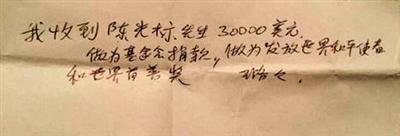 我收到陈光标先生30000美元.
做为基金会捐款，做为发放世界和平使者
和世界首善奖